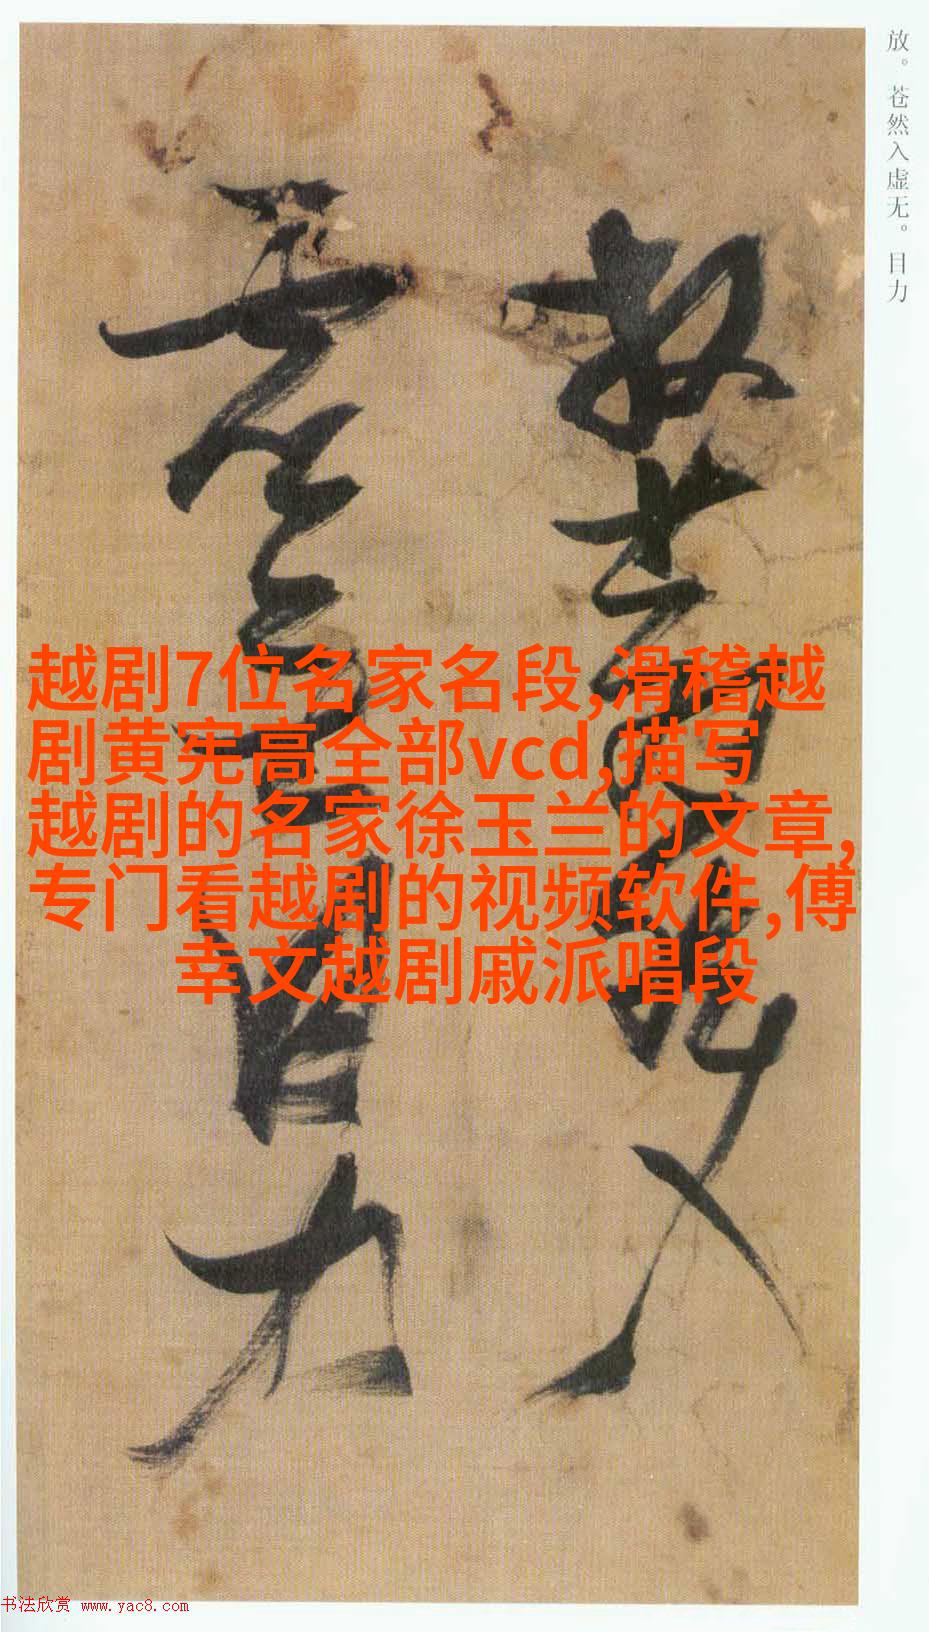 放。苍然入虚无。目力
放苍然入
虚无目力
越剧7位名家名段,滑稽越
剧黄宪高全部vcd,描写
越剧的名家徐玉兰的文章,
专门看越剧的视频软件,傅
幸文越剧戚派唱段
书法欣赏 www.yac8.com